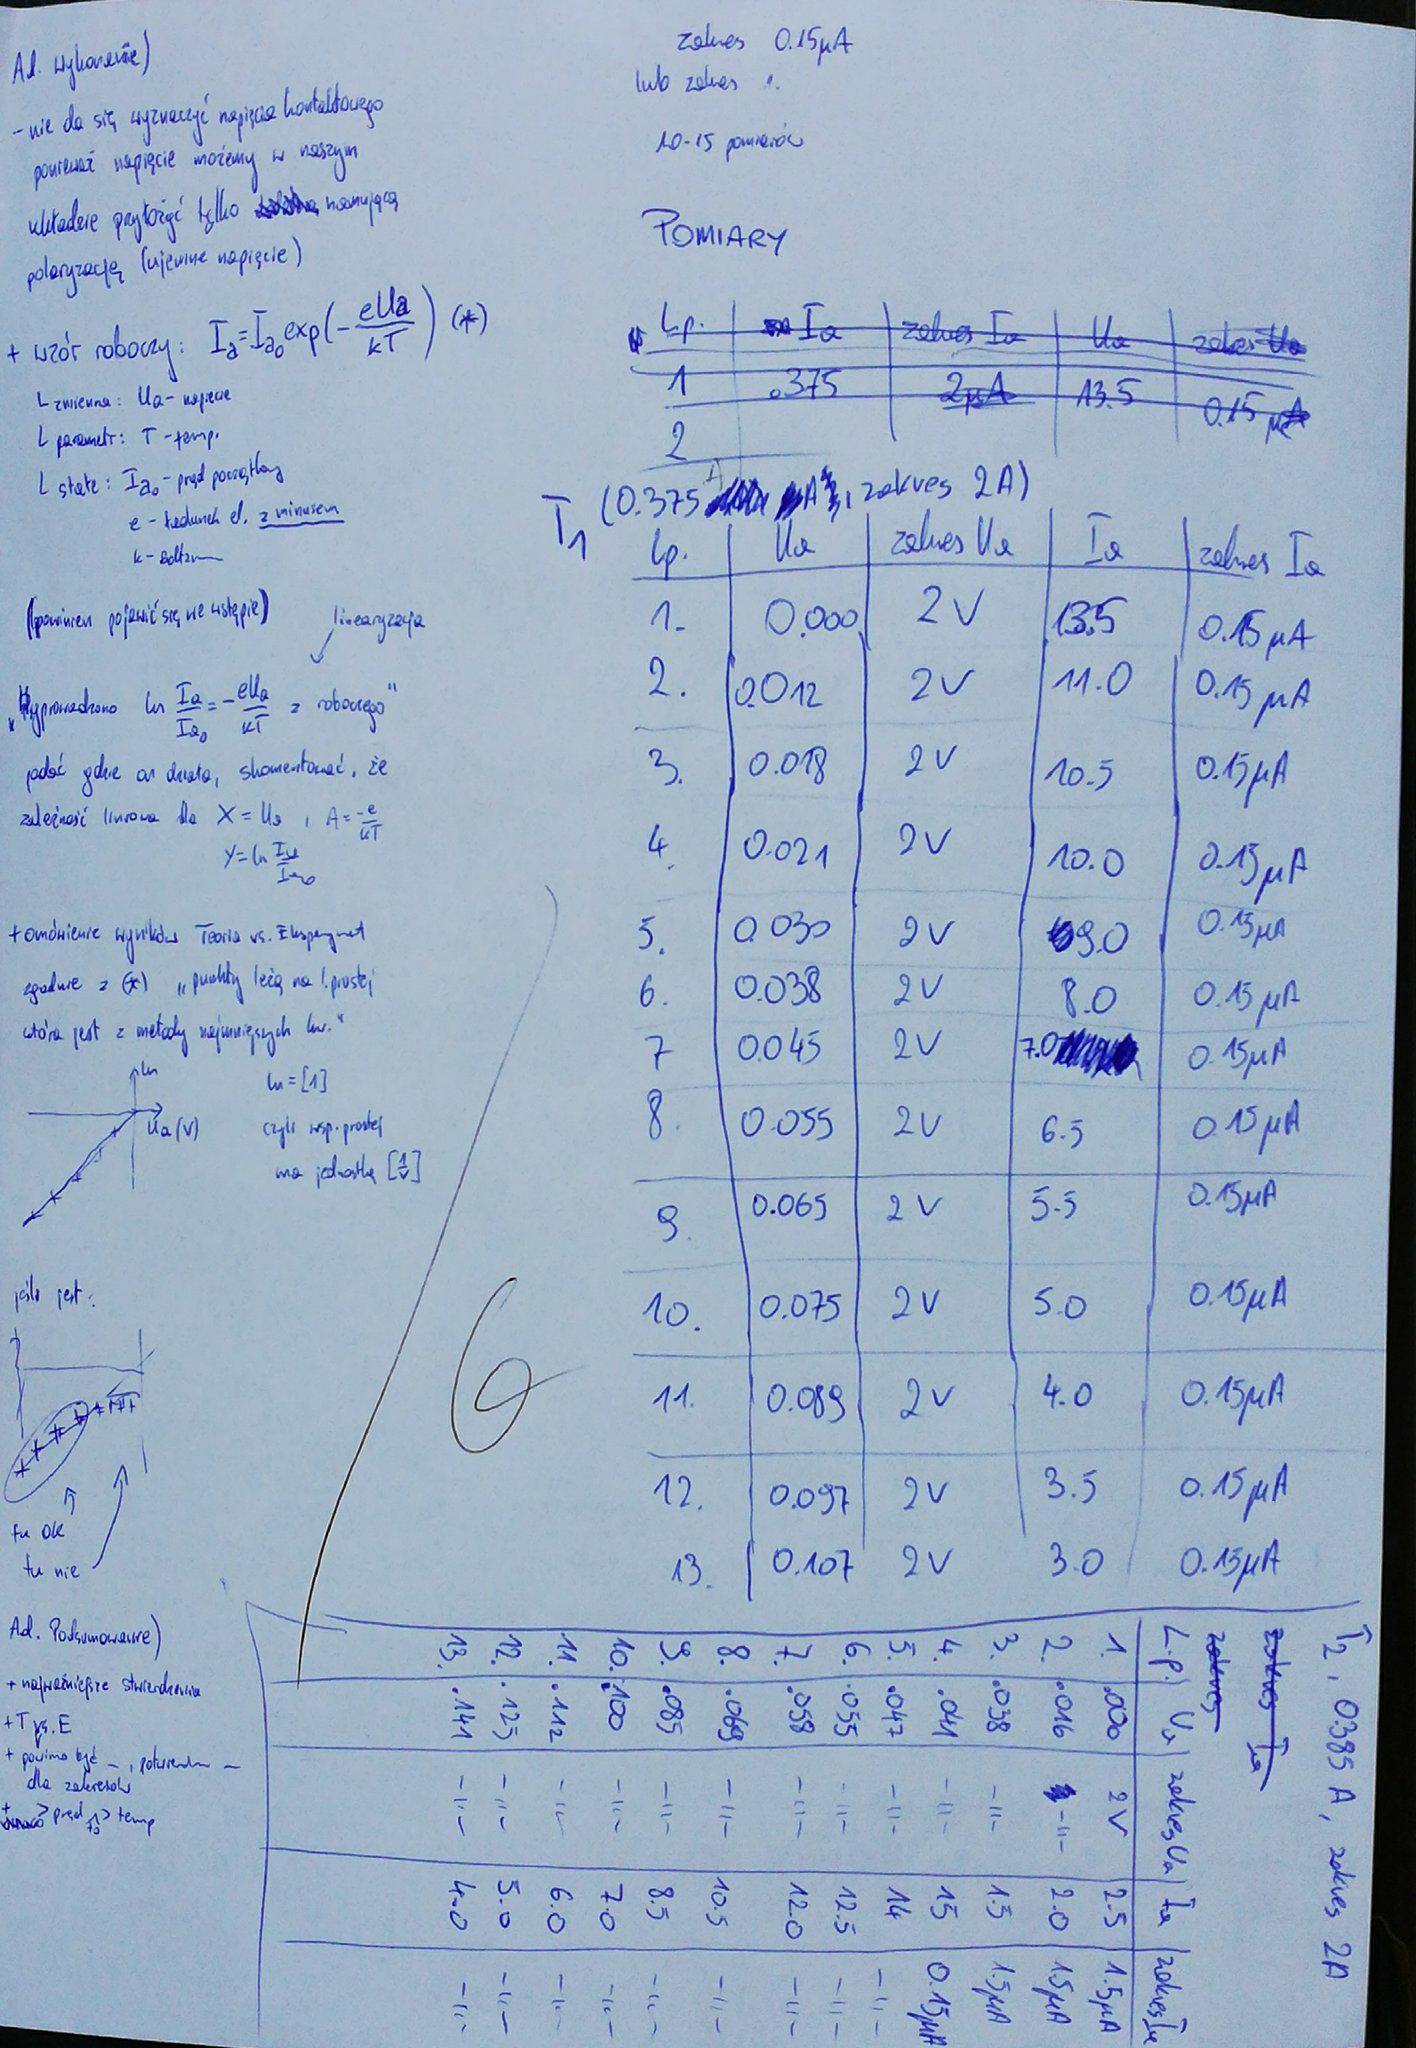 Ad. wykonanie)
- nie da się wyznaczyć napięcia kontaktowego
ponieważ napięcie możemy w naszym
układzie przyłożyć tylko hamującą
polaryzację (ujemne napięcie)
+ wzór roboczy: Ia = Ia0 exp(- eUa/kT) (*)
L zmienna: Ua - napięcie
L parametr: T - temp.
L stałe: Ia0 - prąd początkowy
e - ładunek el. z minusem
k - boltzm
(powinien pojawić się we wstępie)
linearyzacja
"Wyprowadzono ln Ia/Ia0 = - eUa/kT z roboczego"
podać gdzie on działa, skomentować, że
zależność liniowa dla X = Ua, A = -e/kT
Y = ln Ia/Ia0
+ omówienie wyników Teoria vs. Eksperyment
zgodnie z (*) "punkty leżą na l. prostej
która jest z metody najmniejszych kw."
ln
Ua (V)
ln = [1]
czyli wsp. prostej
ma jednostkę [1/V]
jeśli jest:
tu OK
tu nie
Ad. Podsumowanie)
+ najważniejsze stwierdzenia
+ T vs. E
+ powinno być
dla zakresów
+ > prąd > temp
zakres 0.15μA
lub zakres
10-15 pomiarów
POMIARY
Lp. Ia zakres Ia Ua zakres Ua
1 .375 2μA 13.5 0.15 μA
2
T1 (0.375 A, zakres 2A)
Lp. Ua zakres Ua Ia zakres Ia
1. 0.000 2V 13.5 0.15μA
2. 0.012 2V 11.0 0.15μA
3. 0.018 2V 10.5 0.15μA
4. 0.021 2V 10.0 0.15μA
5. 0.030 2V 9.0 0.15μA
6. 0.038 2V 8.0 0.15μA
7 0.045 2V 7.0 0.15μA
8. 0.055 2V 6.5 0.15μA
9. 0.065 2V 5.5 0.15μA
10. 0.075 2V 5.0 0.15μA
11. 0.089 2V 4.0 0.15μA
12. 0.097 2V 3.5 0.15μA
13. 0.107 2V 3.0 0.15μA
T2, 0.385 A, zakres 2A
zakres Ia
zakres
L.p. Ua zakres Ua Ia zakres Ia
1. .000 2V 2.5 1.5μA
2. .016 -||- 2.0 1.5μA
3. .038 -||- 1.5 1.5μA
4. .041 -||- 15 0.15μA
5. .047 -||- 14 -||-
6. .055 -||- 12.5 -||-
7. .058 -||- 12.0 -||-
8. .069 -||- 10.5 -||-
9. .085 -||- 8.5 -||-
10. .100 -||- 7.0 -||-
11. .112 -||- 6.0 -||-
12. .125 -||- 5.0 -||-
13. .141 -||- 4.0 -||-